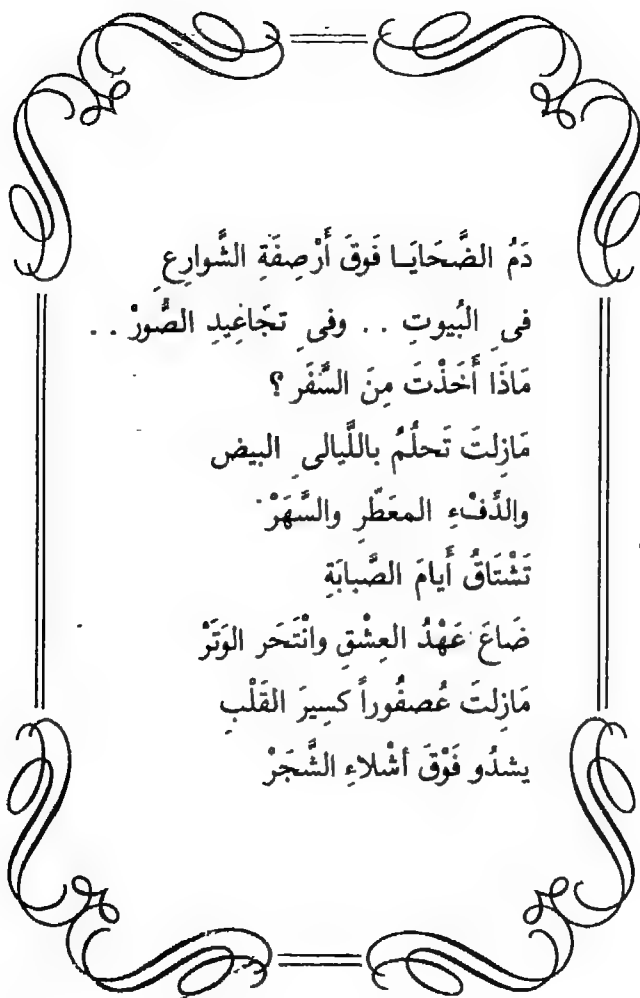 دَمُ الضَّحَايَـا فَوقَ أَرْصِفَةِ الشَّوارِعِ
فىِ البُيوتِ .. وفىِ تجَاغِيدِ الصُّورْ ..
مَاذَا أَخَذْتَ مِنَ السَّفَر ؟
مَازِلتَ تَحلُمُ باللَّيالىِ البيض
والدِّفْءِ المعَطّرِ والسَّهَرْ
تَشْتَاقُ أَيامَ الصَّبابَةِ
ضَاعَ عَهْدُ العِشْقِ وانْتَحَر الوَتَرْ
مَازِلتَ عُصفُوراً كسِيرَ القَلْبِ
يشدُو فَوْقَ أشْلاءِ الشَّجَرْ